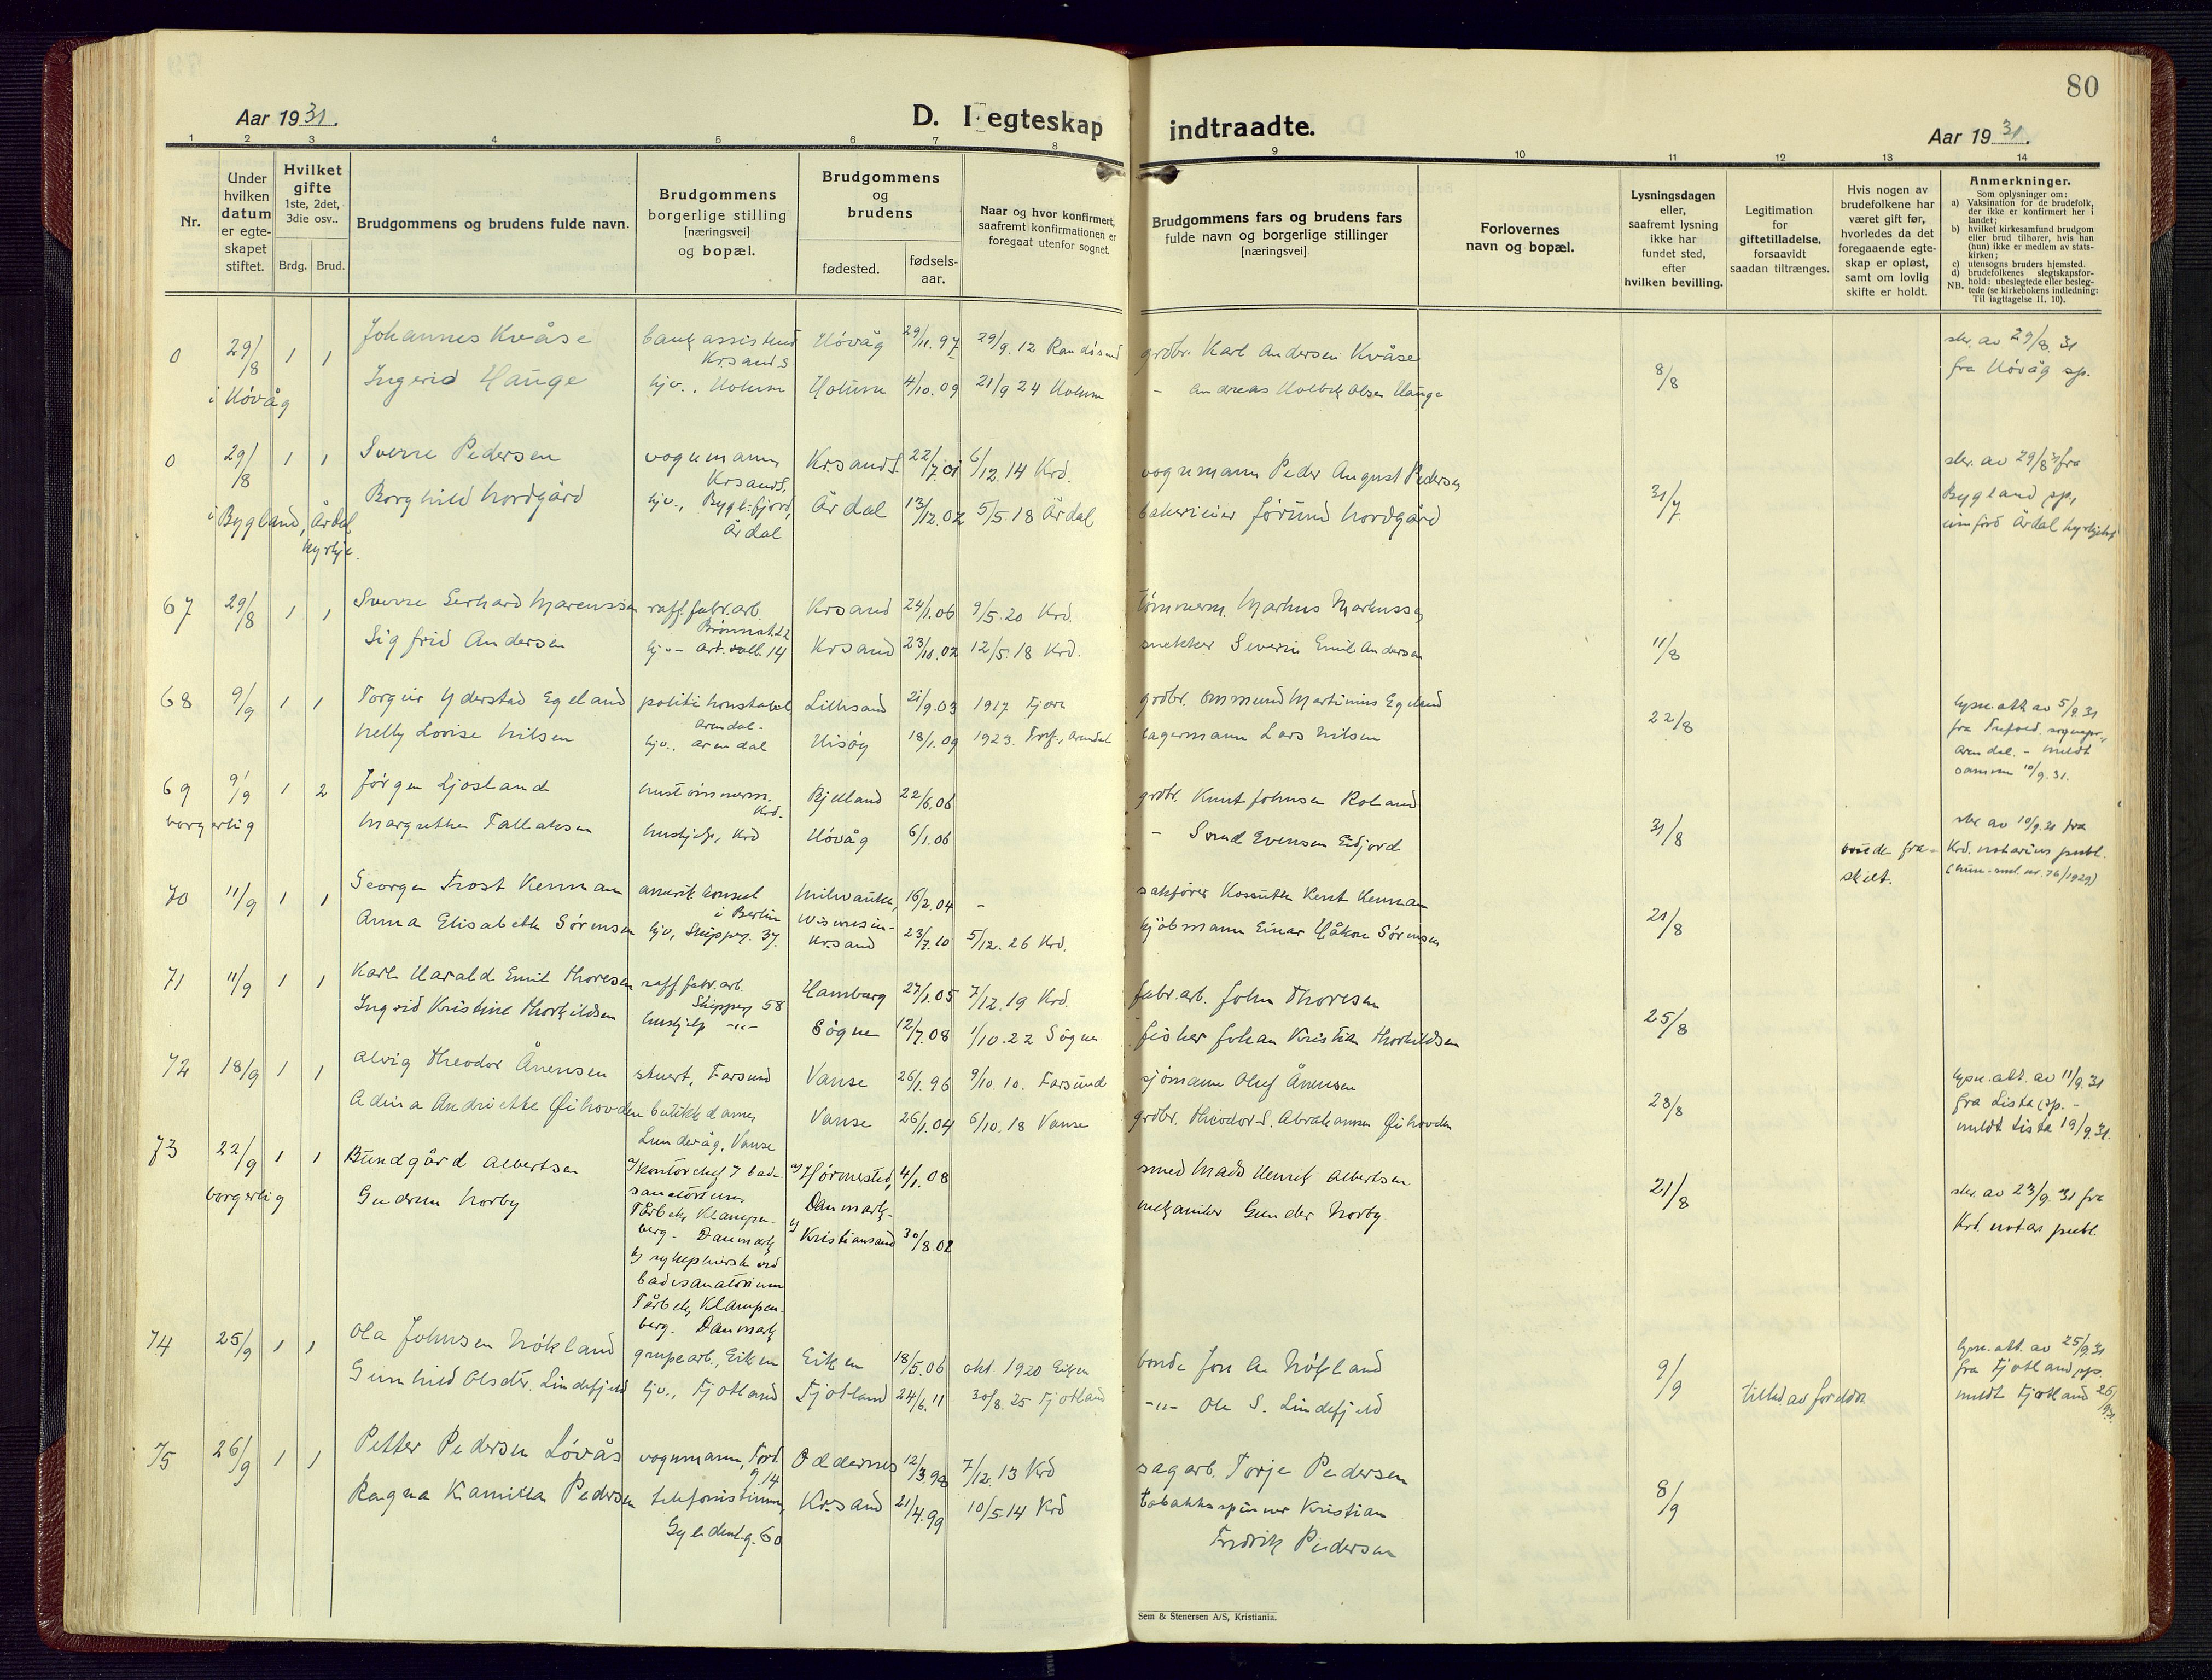 80
Aar 1931.
D. I egteskap indtraadte.
Aar 1931.
1 2 3 4 5 6 7 8 9 10 11 12 13 14
Nr.
Under hvilken datum er egte-skapet stiftet.
Hvilket gifte 1ste, 2det, 3die osv..
Brdg. Brud.
Brudgommens og brudens fulde navn.
Brudgommens borgerlige stilling [næringsvei] og bopæl.
Brudgommens og brudens
fødested. fødsels-aar.
Naar og hvor konfirmert, saafremt konfirmationen er foregaat utenfor sognet.
Brudgommens fars og brudens fars fulde navn og borgerlige stillinger [næringsvei]
Forlovernes navn og bopæl.
Lysningsdagen eller, saafremt lysning ikke har fundet sted, efter hvilken bevilling.
Legitimation for giftetilladelse, forsaavidt saadan tiltrænges.
Hvis nogen av brudefolkene har været gift før, hvorledes da det foregaaende egte-skap er opløst, samt om lovlig skifte er holdt.
Anmerkninger.
Som oplysninger om:
a) Vaksination for de brudefolk, der ikke er konfirmert her i landet;
b) hvilket kirkesamfund brudgom eller brud tilhører, hvis han (hun) ikke er medlem av stats-kirken;
c) utensogns bruders hjemsted.
d) brudefolkenes slegtskapsfor-hold: ubeslegtede eller besleg-tede (se kirkebokens indledning: Til iagttagelse II, 10).
NB.
0 29/8 1 1 Johannes Kvåse bankassistent Krsand S Høvåg 29/11.97 29/9.12 Randøsund grdbr. Karl Andersen Kvåse 8/8 skr. av 29/8.31
i Høvåg Ingerid Hauge hjv., Holum Holum 4/10.09 21/9 24 Holum – Andreas Olsen Hauge fra Høvåg sp.
0 29/8 1 1 Sverre Pedersen vognmann Krsand S. Krsand S 22/7.01 6/12.14 Krd. vognmann Peder August Pedersen 31/7 skr. av 29/8 31 fra
i Bygland, Årdal kyrkje. Borghild Nordgård hjv., Bygl.fjord, Årdal Årdal 13/12.02 5/5.18 Årdal Jørund Nordgård Bygland sp.
67 29/8 1 1 Sverre Gerhard Marcussen raff.fabr.arb. Krsand 24/1.06 9/5.20 Krd. tømmerm. Markus Markussen 11/8
Sigfrid Andersen hjv– Krsand 23/10.02 12/5.18 Krd. snekker Severin Emil Andersen
68 9/9 1 1 Torgeir Yderstad Egeland politikonstabel Arendal. Lillesand 21/9.03 1917 grdbr. Ommund Martinius Egeland 22/8 lysn.att. av 5/9.31
Nelly Lovise Nilsen hjv., Arendal Hisøy 18/1.09 1923. Tref., Arendal lagermann Lars Nilsen fra Trefold. sognepr., Arendal. – meldt samme 10/9.31.
69 9/9 1 2 Jørgen Ljosland hustømmerm. Krd. Bjelland 22/6.06 grdbr. Knut Johnsen Roland 31/8 skr av 10/9.31 fra
borgerlig Margrethe Tallaksen hushjelp, Krd Høvåg 6/1.06 – Evensen Eidjord fraskilt. Krd. notarius publ.
70 11/9 1 1 George Frost Kennan amerik. konsul i Berlin Milwaukee, Wisconsin– 16/2.04 – sakfører Kossuth Kent Kennan 21/8
Anna Elisabeth Sørensen hjv., Skipperg. 37. Krsand 23/7.10 5/12.26 Krd. kjøbmann Einar Håkon Sørensen
71 11/9 1 1 Karl Harald Emil Thoresen raff.fabr.arb. Skipperg 58 Hamburg 27/1.05 7/12.19 Krd. fabr.arb. John Thoresen 25/8
Ingrid Kristine Thorkildsen hushjelp –"– Søgne 12/7.08 1/10.22 Søgne fisker Johan Kristian Thorkildsen
72 18/9 1 1 Alvig Theodor Ånensen stuert, Farsund Vanse 26/1.96 9/10.10. Farsund sjømann Oluf Ånensen 28/8 lysn.att. av 11/9.31
Adina Andriette Øihovden butikkdame, Lundevåg, Vanse Vanse 26/1.04 6/10.18 Vanse grdbr. Theodor S. Abrahamsen Øihovden fra Lista sp. – meldt Lista 19/9.31.
73 22/9 1 1 Bundgård Albertsen a) kontorchef v/ badesanatorium Tårbek, Klampenberg. Danmark a) Hørmested, Danmark– 4/1.08 smed Mads Henrik Albertsen 21/8 skr. av 23/9.31 fra
borgerlig Gudrun Norby b) sykepleierske ved badesanatorium Tårbek, Klampenberg. Danmark b) Kristiansand 30/8.02 mekaniker Gunder Norby Krd. notar publ.
74 25/9 1 1 Ola Johnsen Nökland grupearb., Eiken Eiken 18/5.06 okt. 1920 Eiken bonde Jon A. Nökland 9/9 lysn.att. av 25/9.31
Gunhild Olsdtr. Lindefjeld hjv., Fjotland Fjotland 24/6.11 30/8.25 Fjotland –"– Ole S. Lindefjeld tillad. av foreldre fra Fjotland sp. meldt Fjotland 26/9.31.
75 26/9 1 1 Petter Pedersen Løvås vognmann, Tord. g. 14 Oddernes 12/3.98 7/12.13 Krd sagarb. Torje Pedersen 8/9
Ragna Kamilla Pedersen telefonistinne, Gyldenl.g. 60 Krsand 21/4.99 10/5.14 Krd tobakksspinner Kristian Fredrik Pedersen
Sem & Stenersen A/S, Kristiania.